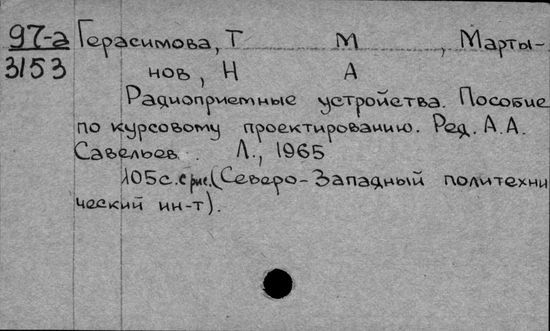 97-а Герасимова, Т М , Марты-
3153 нов, Н А
Радиоприемные устройства. Пособие
по курсовому проектированию. Ред. А.А.
Савельев. Л., 1965
105с. с рис. (Северо-Западный политехни
ческий ин-т).